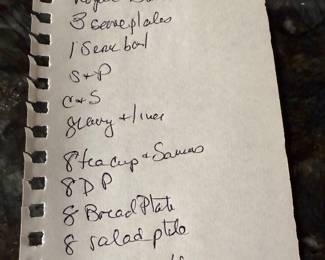 3 serve plates
1 Serve bowl
S + P
C + S
8 tea cup + Saucers
8 D P
8 Bread Plate
8 salad plate